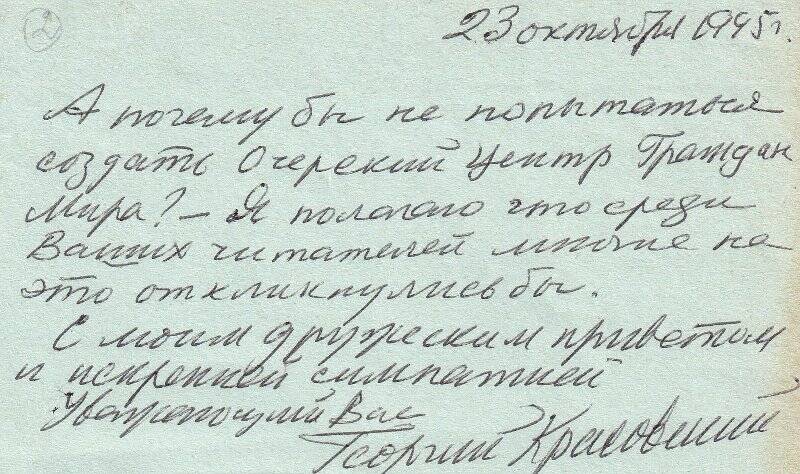 2
23 октября 1995г.
А почему бы не попытаться
создать Очерский Центр Граждан
Мира? – Я полагаю что среди
Ваших читателей многие на
это откликнулись бы.
С моим дружеским приветом
и искренней симпатией
Уважающий Вас
Георгий